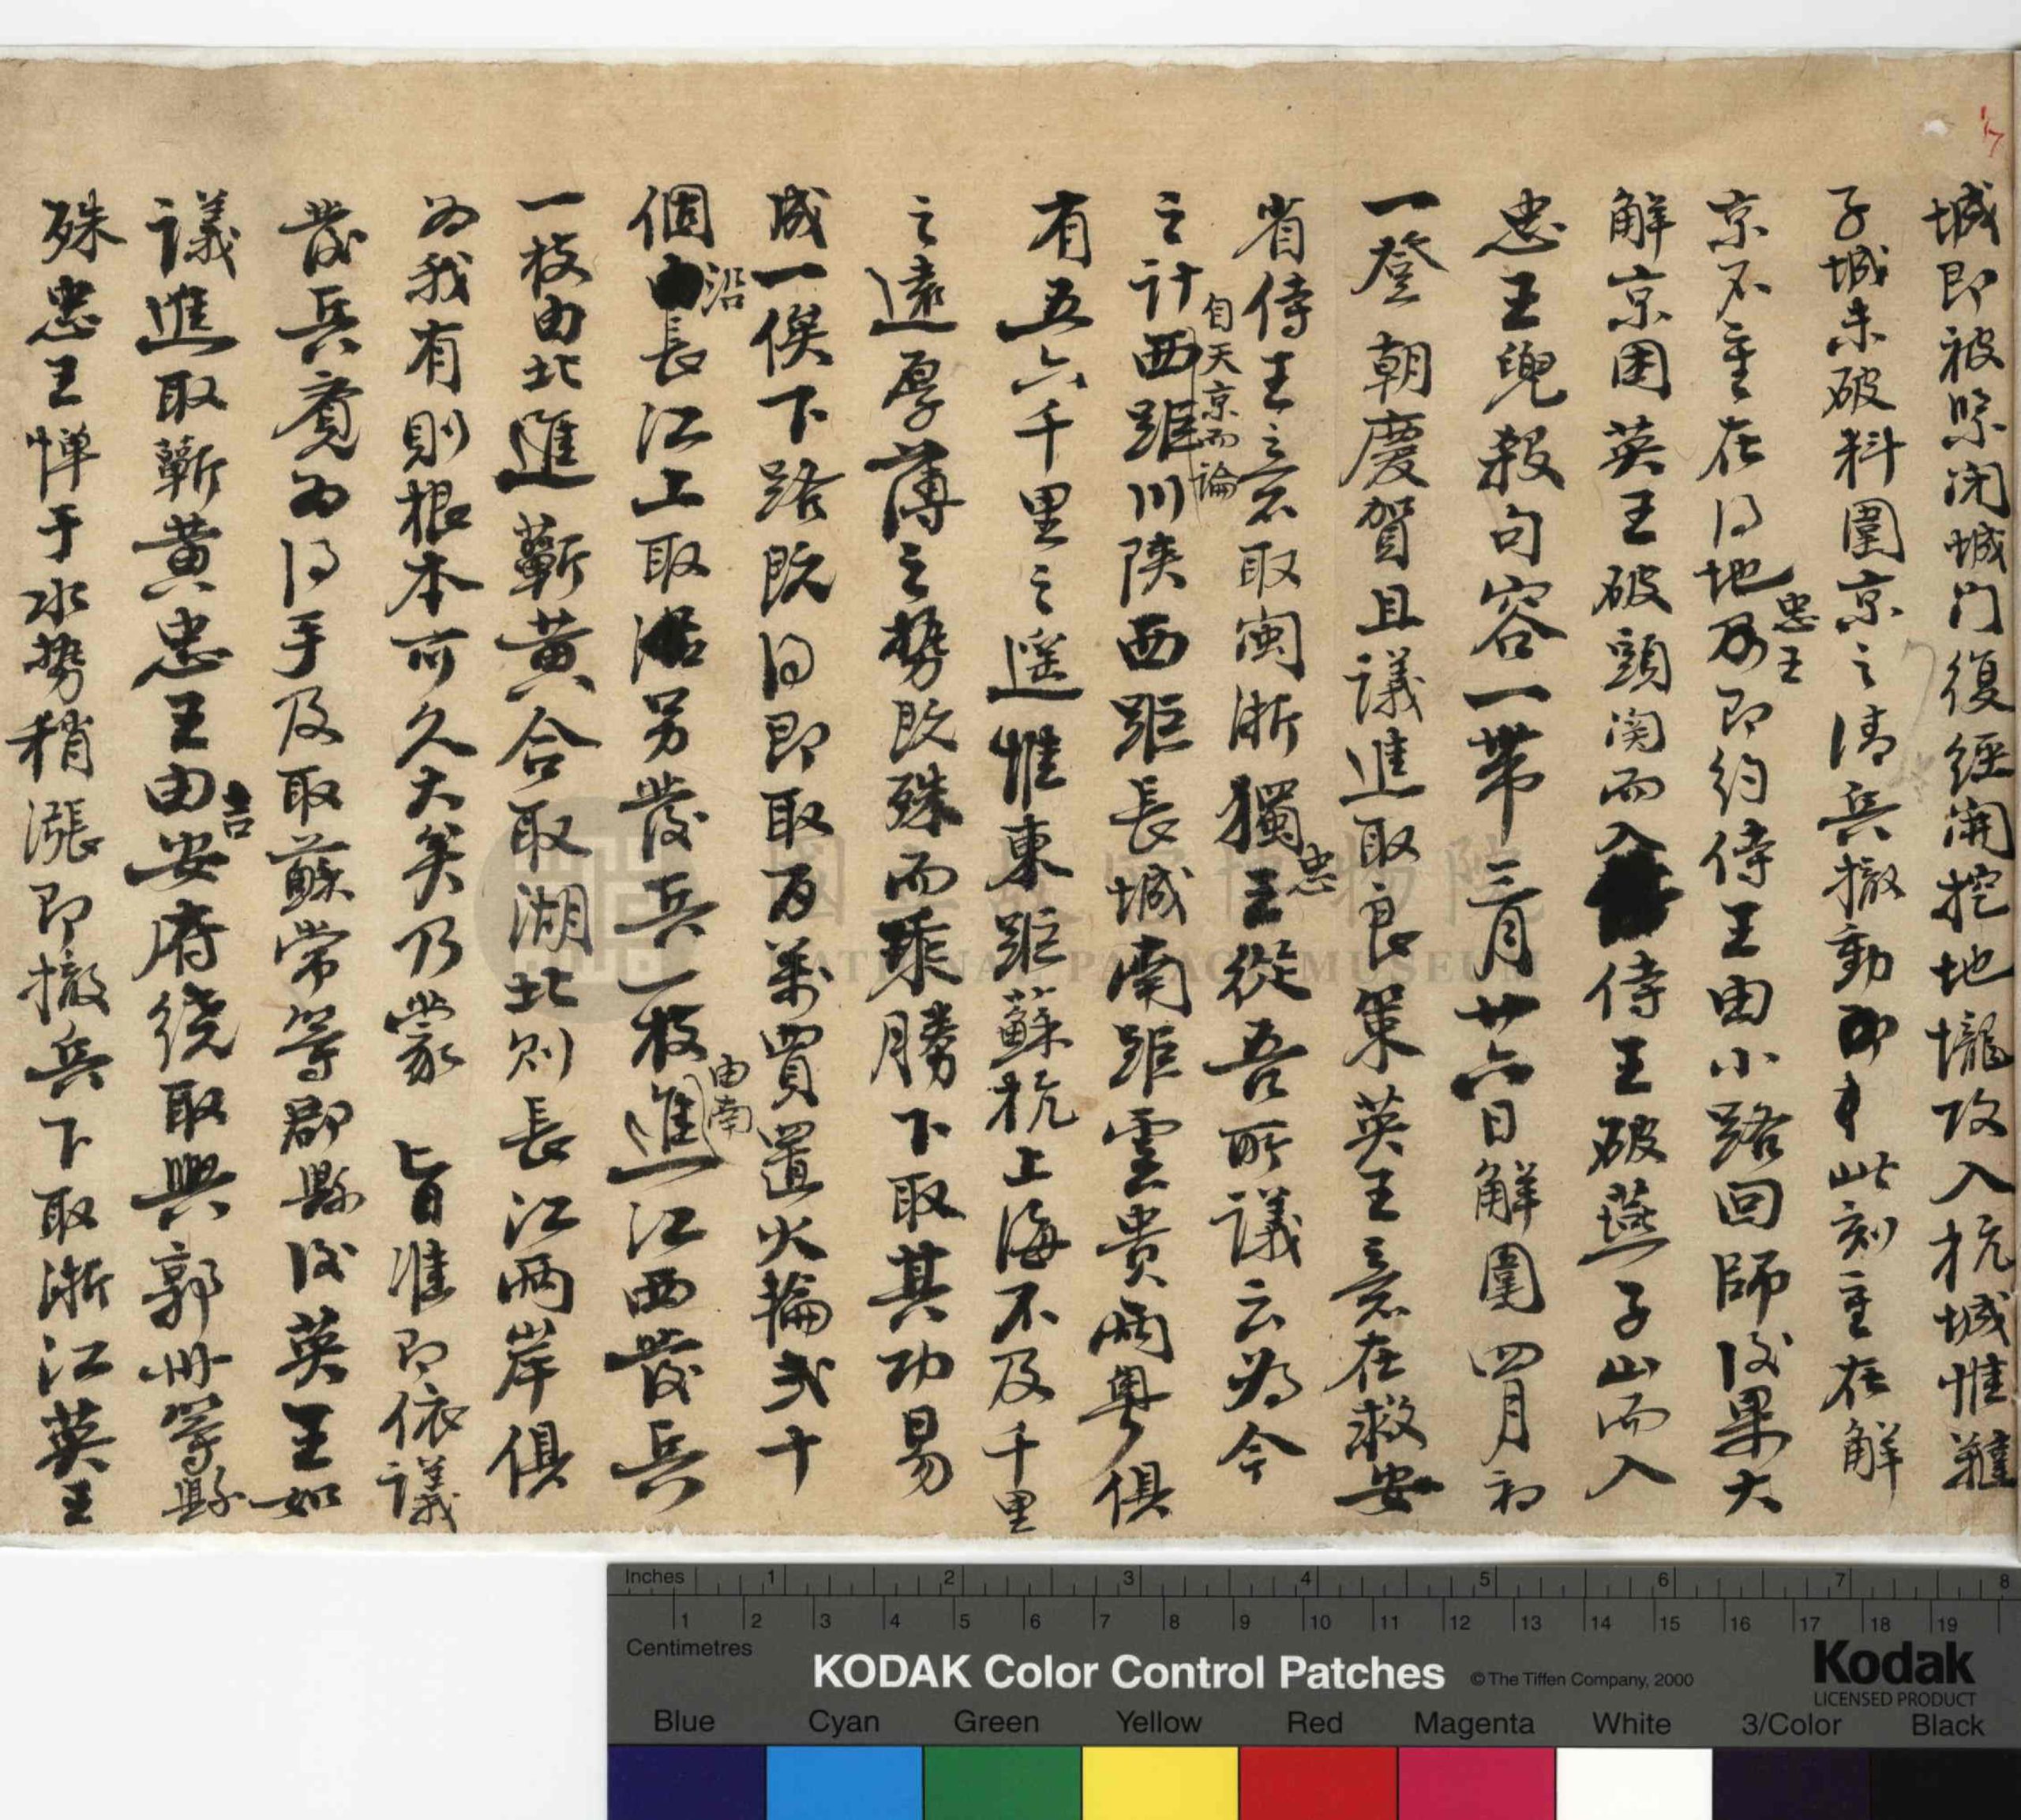 城即被緊闭城门復經開挖地壠攻入杭城惟難
子城未破料圍京之清兵撤動即由此刻重在解
京不重在得地及即約侍王由小路回師後果大
忠王
解京困英王破頭関而入侍王破燕子山而入
忠王兜殺句容一帶三月廿六日解圍四月初
一登朝慶賀且議進取良策英王意在救安
省侍王意取閩浙獨王從吾所議云為今
忠
之計西距川陝西距長城南距雲貴兩粵俱
自天京而論
有五六千里之遥惟東距蘇杭上海不及千里
之遠厚薄之勢既殊而乘勝下取其功易
成一俟下路既得即取百萬買置火輪弍十
個長江上取另發兵一枝進江西發兵
沿
由南
一枝由北進蘄黄合取湖北则長江兩岸俱
为我有則根本可久大矣乃蒙 旨准即依議
發兵覔为得手及取蘇常等郡縣後英王如
議進取蘄黄忠王由安府绕取興郭州等縣
吉
殊忠王惮于水势稍漲即撤兵下取浙江英王
國立故宮博物院
NATIONAL PALACE MUSEUM
Inches 1 2 3 4 5 6 7 8
1 2 3 4 5 6 7 8 9 10 11 12 13 14 15 16 17 18 19
Centimetres
KODAK Color Control Patches ©The Tiffen Company, 2000
Kodak
LICENSED PRODUCT
Blue Cyan Green Yellow Red Magenta White 3/Color Black